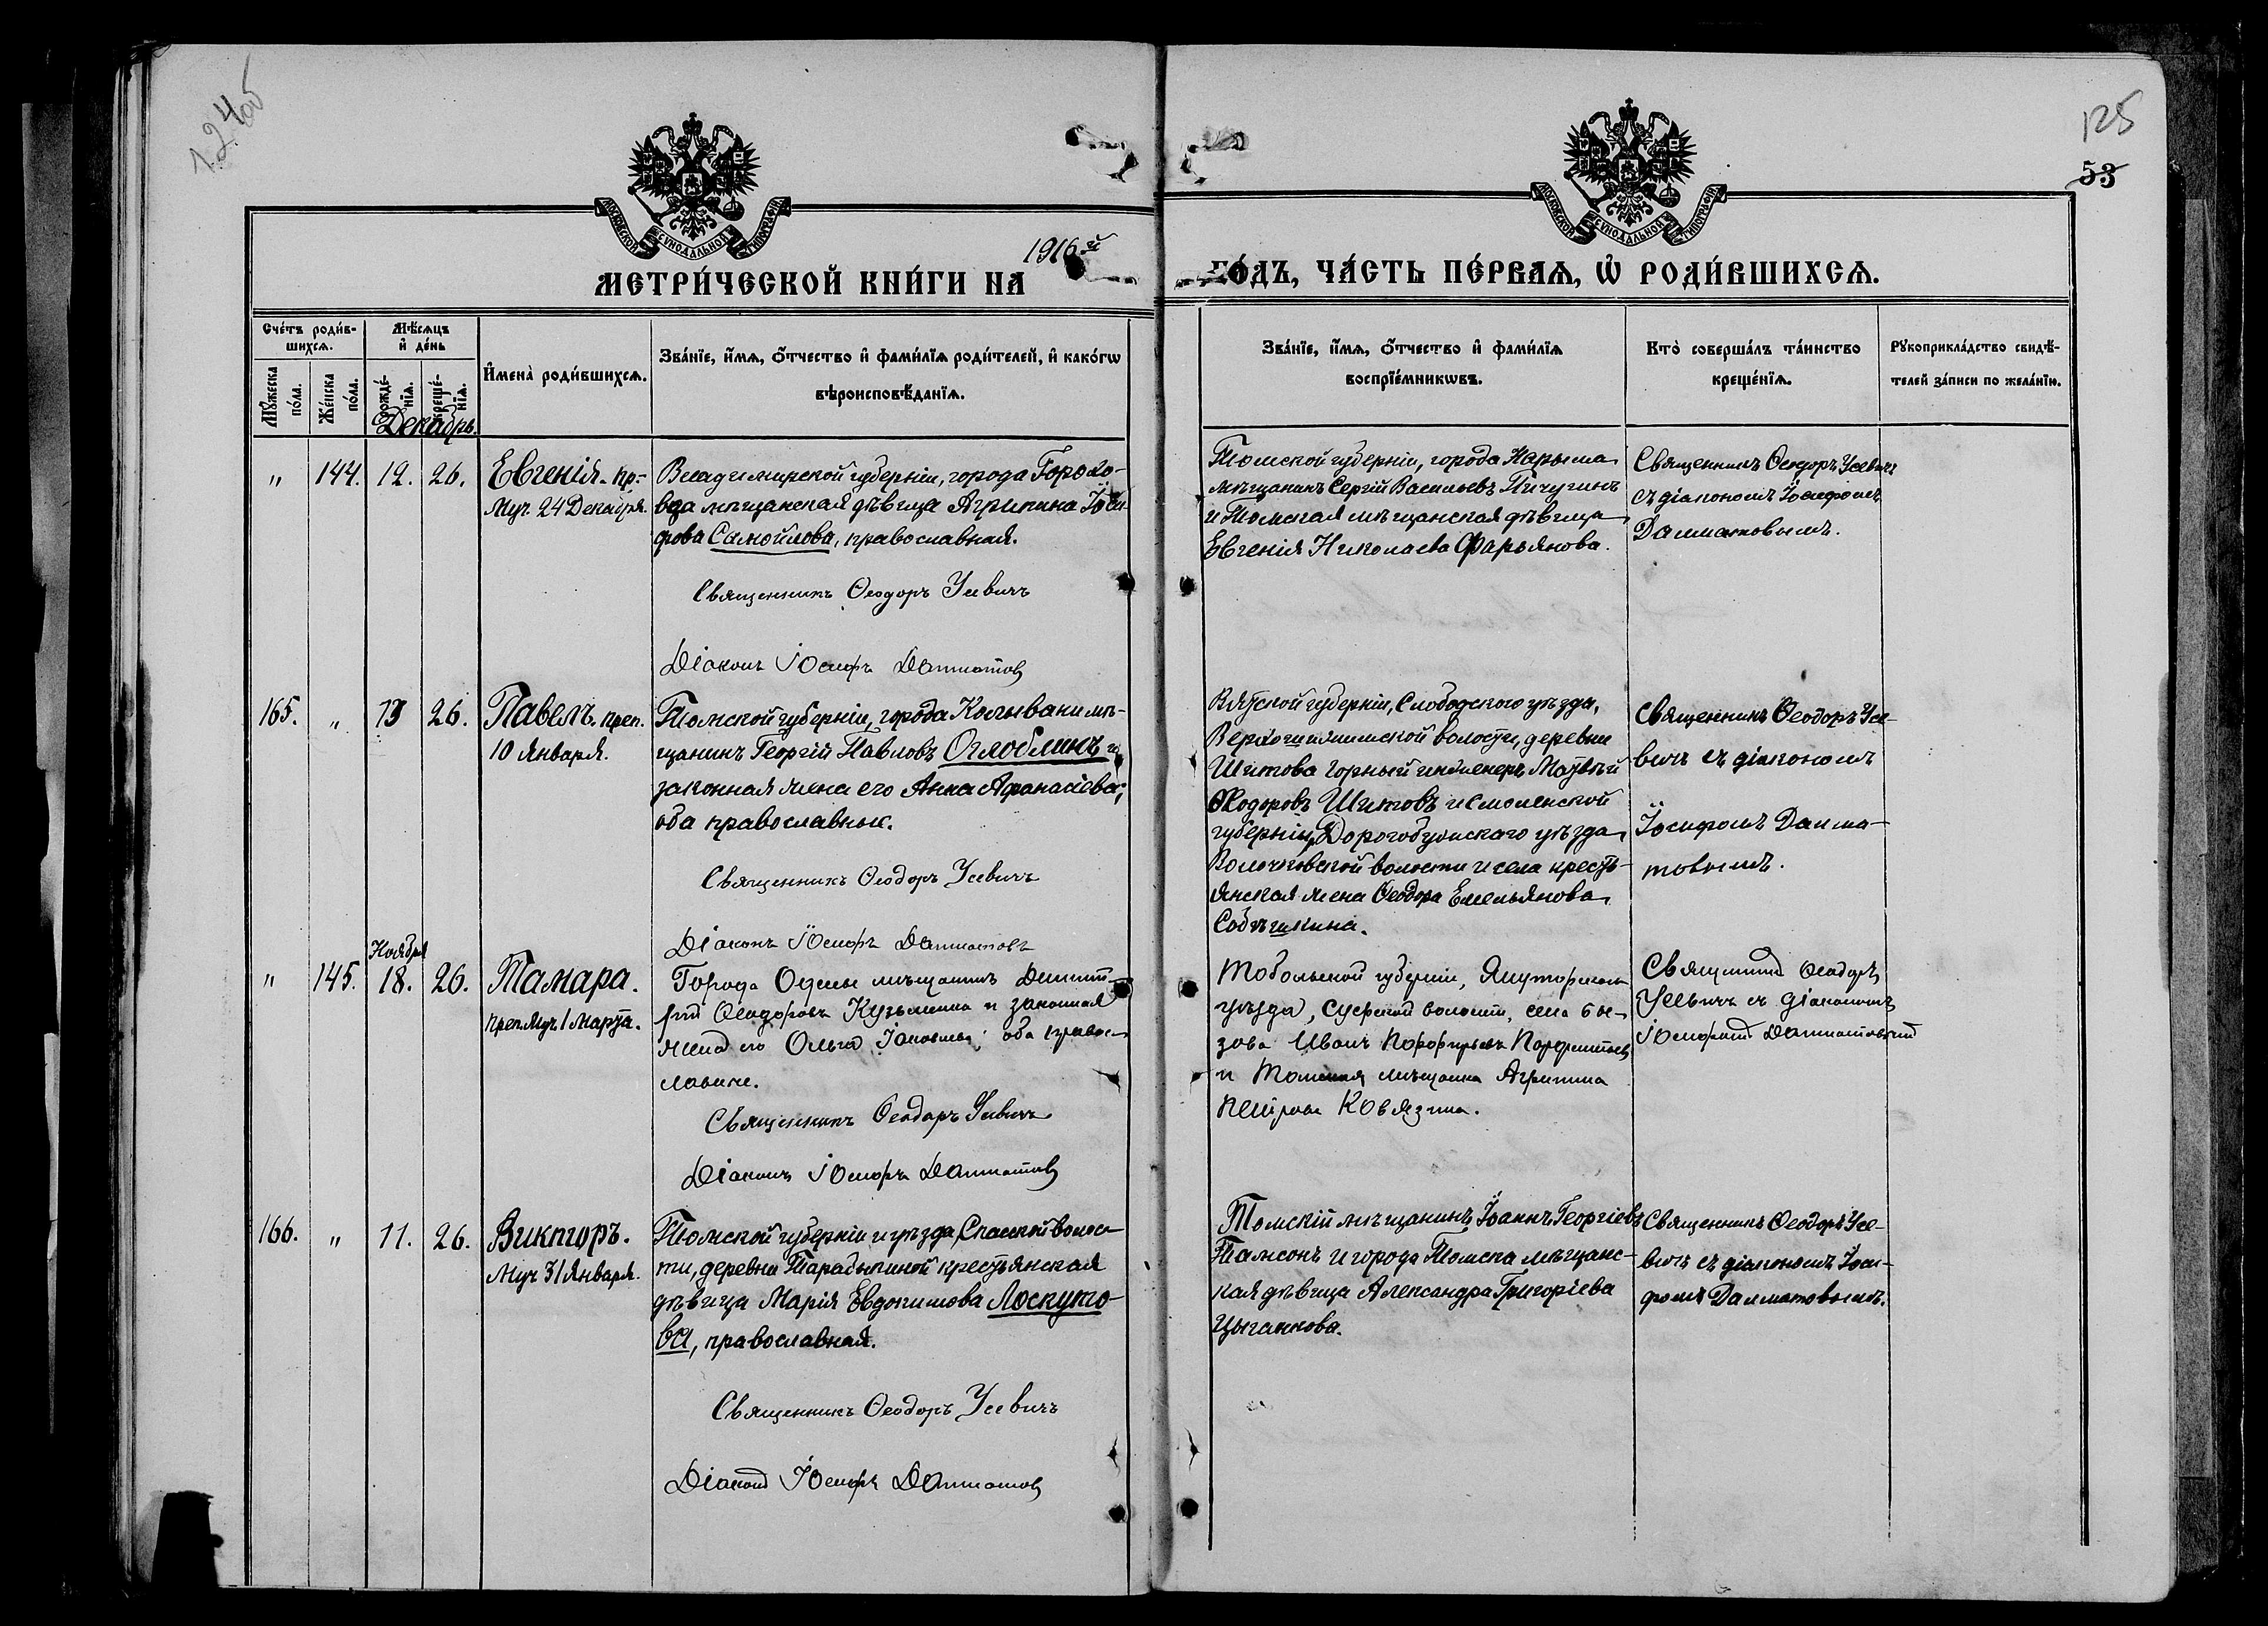 124об
125
53
МОСКОВСКОЙ СѴНОДАЛЬНОЙ ТИПОГРАФІИ
МОСКОВСКОЙ СѴНОДАЛЬНОЙ ТИПОГРАФІИ
МЕТРИ́ЧЕСКОЙ КНИ́ГИ НА 1916й
ГО́ДЪ, ЧА́СТЬ ПЕ́РВАѦ, Ѡ҆ РОДИ́ВШИХСѦ.
Сче́тъ роди́в-
шихсѧ.
Мѣ́сѧцъ
и҆ де́нь
Мꙋ́жеска
по́ла.
Же́нска
по́ла.
рожде́-
нїѧ.
креще́-
нїѧ.
И҆мена̀ роди́вшихсѧ.
Зва́нїе, и҆́мѧ, ѻ҆́тчество и҆ фами́лїѧ роди́телей, и҆ како́гѡ
вѣроисповѣ́данїѧ.
Зва́нїе, и҆́мѧ, ѻ҆́тчество и҆ фами́лїѧ
воспрїе́мникѡвъ.
Кто̀ соверша́лъ та́инство
креще́нїѧ.
Рꙋкоприкла́дство свидѣ́-
телей за́писи по жела́нїю.
Декабрь.
" 144. 12. 26.
Евгенія. пр.-
муч. 24 Декабря.
Владимирской губерніи, города Горохо-
вца мѣщанская дѣвица Агрипина Іоси-
фова Самойлова, православная.
Священникъ Ѳеодоръ Усевичъ
Діаконъ Іосифъ Далматовъ
Томской губерніи, города Нарыма
мѣщанинъ Сергій Васильевъ Пичугинъ
и Томская мѣщанская дѣвица
Евгенія Николаева Фарьянова.
Священникъ Ѳеодоръ Усевичъ
съ діакономъ Іосифомъ
Далматовымъ.
165. " 13 26.
Павелъ. преп.
10 Января.
Томской губерніи, города Колывани мѣ-
щанинъ Георгій Павловъ Оглоблинъ и
законная жена его Анна Афанасіева;
оба православные.
Священникъ Ѳеодоръ Усевичъ
Діаконъ Іосифъ Далматовъ
Вятской губерніи, Слободского уѣзда,
волости, деревни
Шитова горный инженеръ Матвѣй
Ѳеодоровъ Шитовъ и Смоленской
губерніи, Дорогобужскаго уѣзда,
Волочковской волости и села кресть-
янская жена Ѳеодора Емельянова
Священникъ Ѳеодоръ Усе-
вичъ съ діакономъ
Іосифомъ Далма-
товымъ.
Ноября
" 145. 18. 26.
Тамара.
преп. муч. 1 Марта.
Города Одессы мѣщанинъ Димит-
рій Ѳеодоровъ Кузьменко и законная
жена его Ольга Іаковлева; оба правос-
лавные.
Священникъ Ѳеодоръ Усевичъ
Діаконъ Іосифъ Далматовъ
Тобольской губерніи, Ялуторовскаго
уѣзда, Суерской волости, села Бы-
зова Иванъ Порфирьевъ
и Томская мѣщанка Агрипина
Петрова Ковязина.
Священникъ Ѳеодоръ
Усевичъ съ діакономъ
Іосифомъ Далматовымъ
166. " 11. 26.
Викторъ.
муч 31 Января.
Томской губерніи и уѣзда, Спасской волос-
ти, деревни Тарабыкиной крестьянская
дѣвица Марія Евдокимова Лоскуто-
ва, православная.
Священникъ Ѳеодоръ Усевичъ
Діаконъ Іосифъ Далматовъ
Томскій мѣщанинъ Іоаннъ Георгіевъ
Тамсонъ и города Томска мѣщанс-
кая дѣвица Александра Григоріева
Цыганкова.
Священникъ Ѳеодоръ Усе-
вичъ съ діакономъ Іоси-
фомъ Далматовымъ.